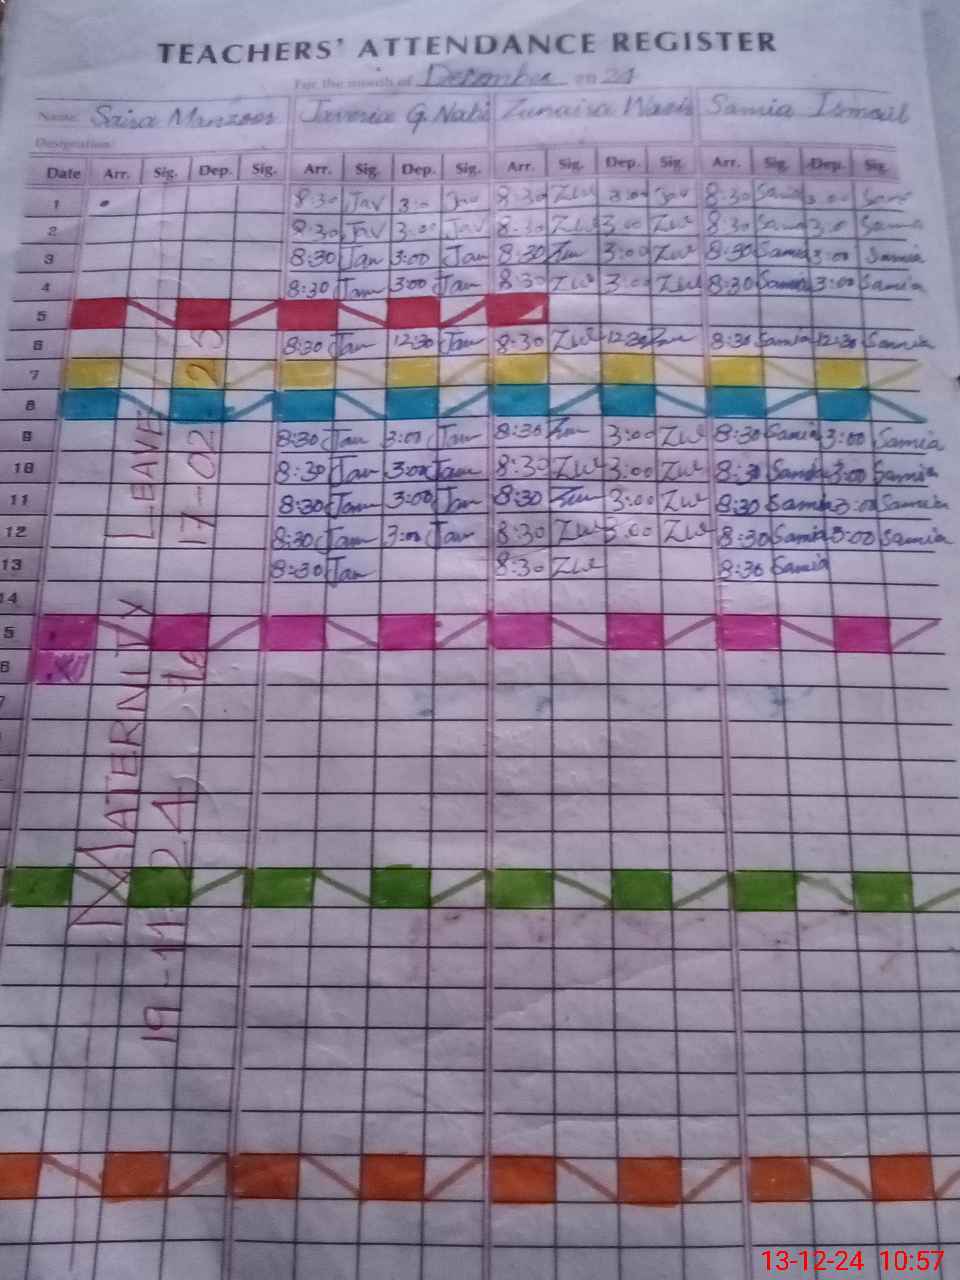 TEACHERS' ATTENDANCE REGISTER
For the month of December on 24
Name Javeria G. Nabi Zunaira Samia Ismail
Designation
Date Arr. Sig. Dep. Sig. Arr. Sig. Dep. Sig. Arr. Sig. Dep. Sig. Arr. Sig. Dep. Sig.
1 8:30 Jav 8:30 Zu 3:00 8:30
2 8:30 Jav 3:00 Jav 8:30 3:00 8:30 3:0
3 8:30 Jav 3:00 Jav 8:30 3:00 Zu 8:30 Samia 3:00 Samia
4 8:30 Jav 3:00 Jav 8:30 Zu 3:00 Zu 8:30 Samia 3:00 Samia
5
6 8:30 Jav 12:30 Jav 8:30 Zu 12:30 8:30 Samia 12:30 Samia
7
8
9 8:30 Jav 3:00 Jav 8:30 3:00 Zu 8:30 Samia 3:00 Samia
10 8:30 Jav 3:00 Jav 8:30 Zu 3:00 Zu 8:30 Samia 3:00 Samia
11 8:30 Jav 3:00 Jav 8:30 3:00 Zu 8:30 Samia 3:00 Samia
12 8:30 Jav 3:00 Jav 8:30 Zu 3:00 Zu 8:30 Samia 3:00 Samia
13 8:30 Jav 8:30 Zu 8:30 Samia
14
5
6
7
MATERNITY LEAVE
19-11-24 to 17-02-25
13-12-24 10:57